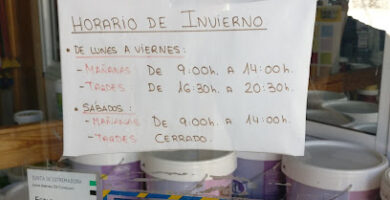 HORARIO DE INVIERNO
• DE LUNES A VIERNES:
- MAÑANAS: DE 9:00h. A 14:00h.
- TARDES DE 16:30h. A 20:30h.
• SÁBADOS:
- MAÑANAS DE 9:00h. A 14:00h.
- TARDES: CERRADO.
JUNTA DE EXTREMADURA